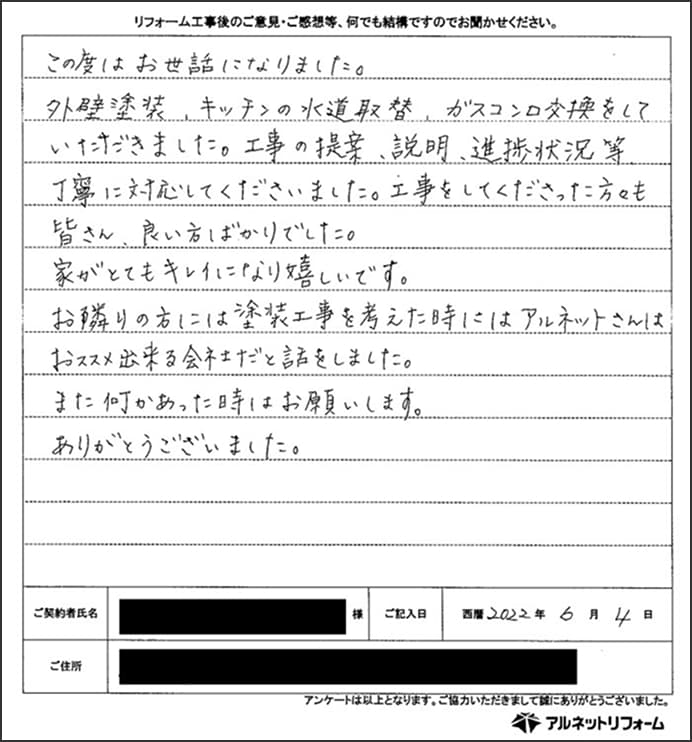 リフォーム工事後のご意見・ご感想等、何でも結構ですのでお聞かせください。
この度は お世話になりました。
外壁塗装、キッチンの水道取替、ガスコンロ交換をして
いただきました。工事の提案、説明、進捗状況等
丁寧に対応してくださいました。工事をしてくださった方々も
皆さん、良い方ばかりでした。
家がとてもキレイになり嬉しいです。
お隣りの方には塗装工事を考えた時にはアルネットさんは
おススメ出来る会社だと話をしました。
また何かあった時はお願いします。
ありがとうございました。
ご契約者氏名 様 ご記入日 西暦 2022 年 6 月 4 日
ご住所
アンケートは以上となります。ご協力いただきまして誠にありがとうございました。
アルネットリフォーム